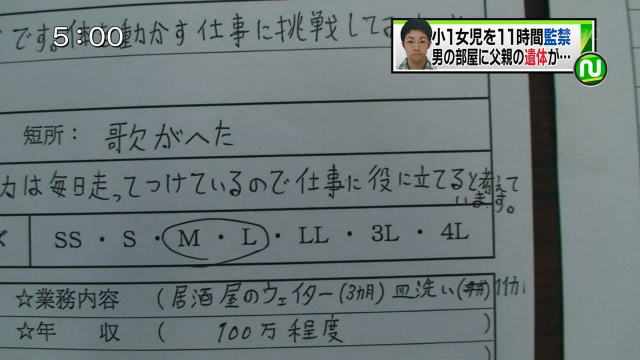 5:00
小1女児を11時間監禁
男の部屋に父親の遺体が…
N
です。体を動かす仕事に挑戦して
短所： 歌がへた
力は毎日走ってつけているので仕事に役に立てると考えて
います。
SS ・ S ・ M ・ L ・ LL ・ 3L ・ 4L
☆業務内容 （居酒屋のウェイター(3カ月) 皿洗い(
☆年 収 （ 100万程度 ）